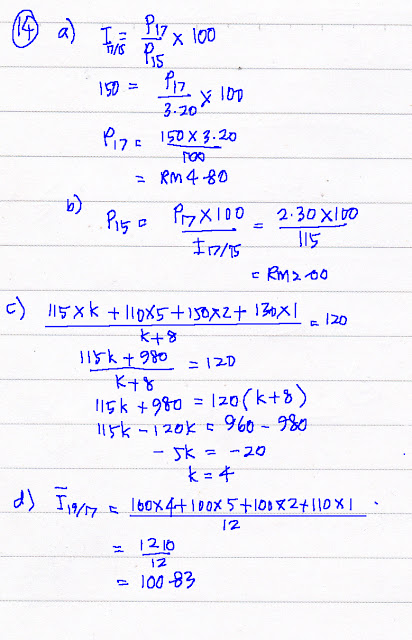 14 a) I17/15 = P17/P15 × 100
150 = P17/3.20 × 100
P17 = 150 × 3.20/100
= RM4.80
b) P15 = P17 × 100/I17/15 = 2.30 × 100/115
= RM2.00
c) 115×k + 110×5 + 150×2 + 130×1/k+8 = 120
115k + 980/k+8 = 120
115k + 980 = 120(k+8)
115k - 120k = 960 - 980
- 5k = -20
k = 4
d) Ī19/17 = 100×4 + 100×5 + 100×2 + 110×1/12
= 1210/12
= 100.83